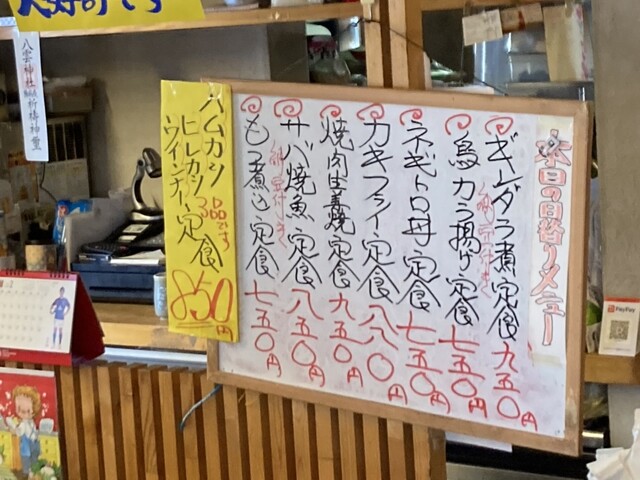 本日の日替りメニュー
ギンダラ煮定食 九五〇円
鳥カラ揚げ定食 七五〇円
ネギトロ丼定食 七五〇円
カキフライ定食 八八〇円
焼肉生姜焼定食 九五〇円
サバ焼魚定食 八五〇円
もつ煮込定食 七五〇円
ハムカツ
ヒレカツ
ウインナー定食
3品です
850円
八雲神社
祈祷神璽
PayPay